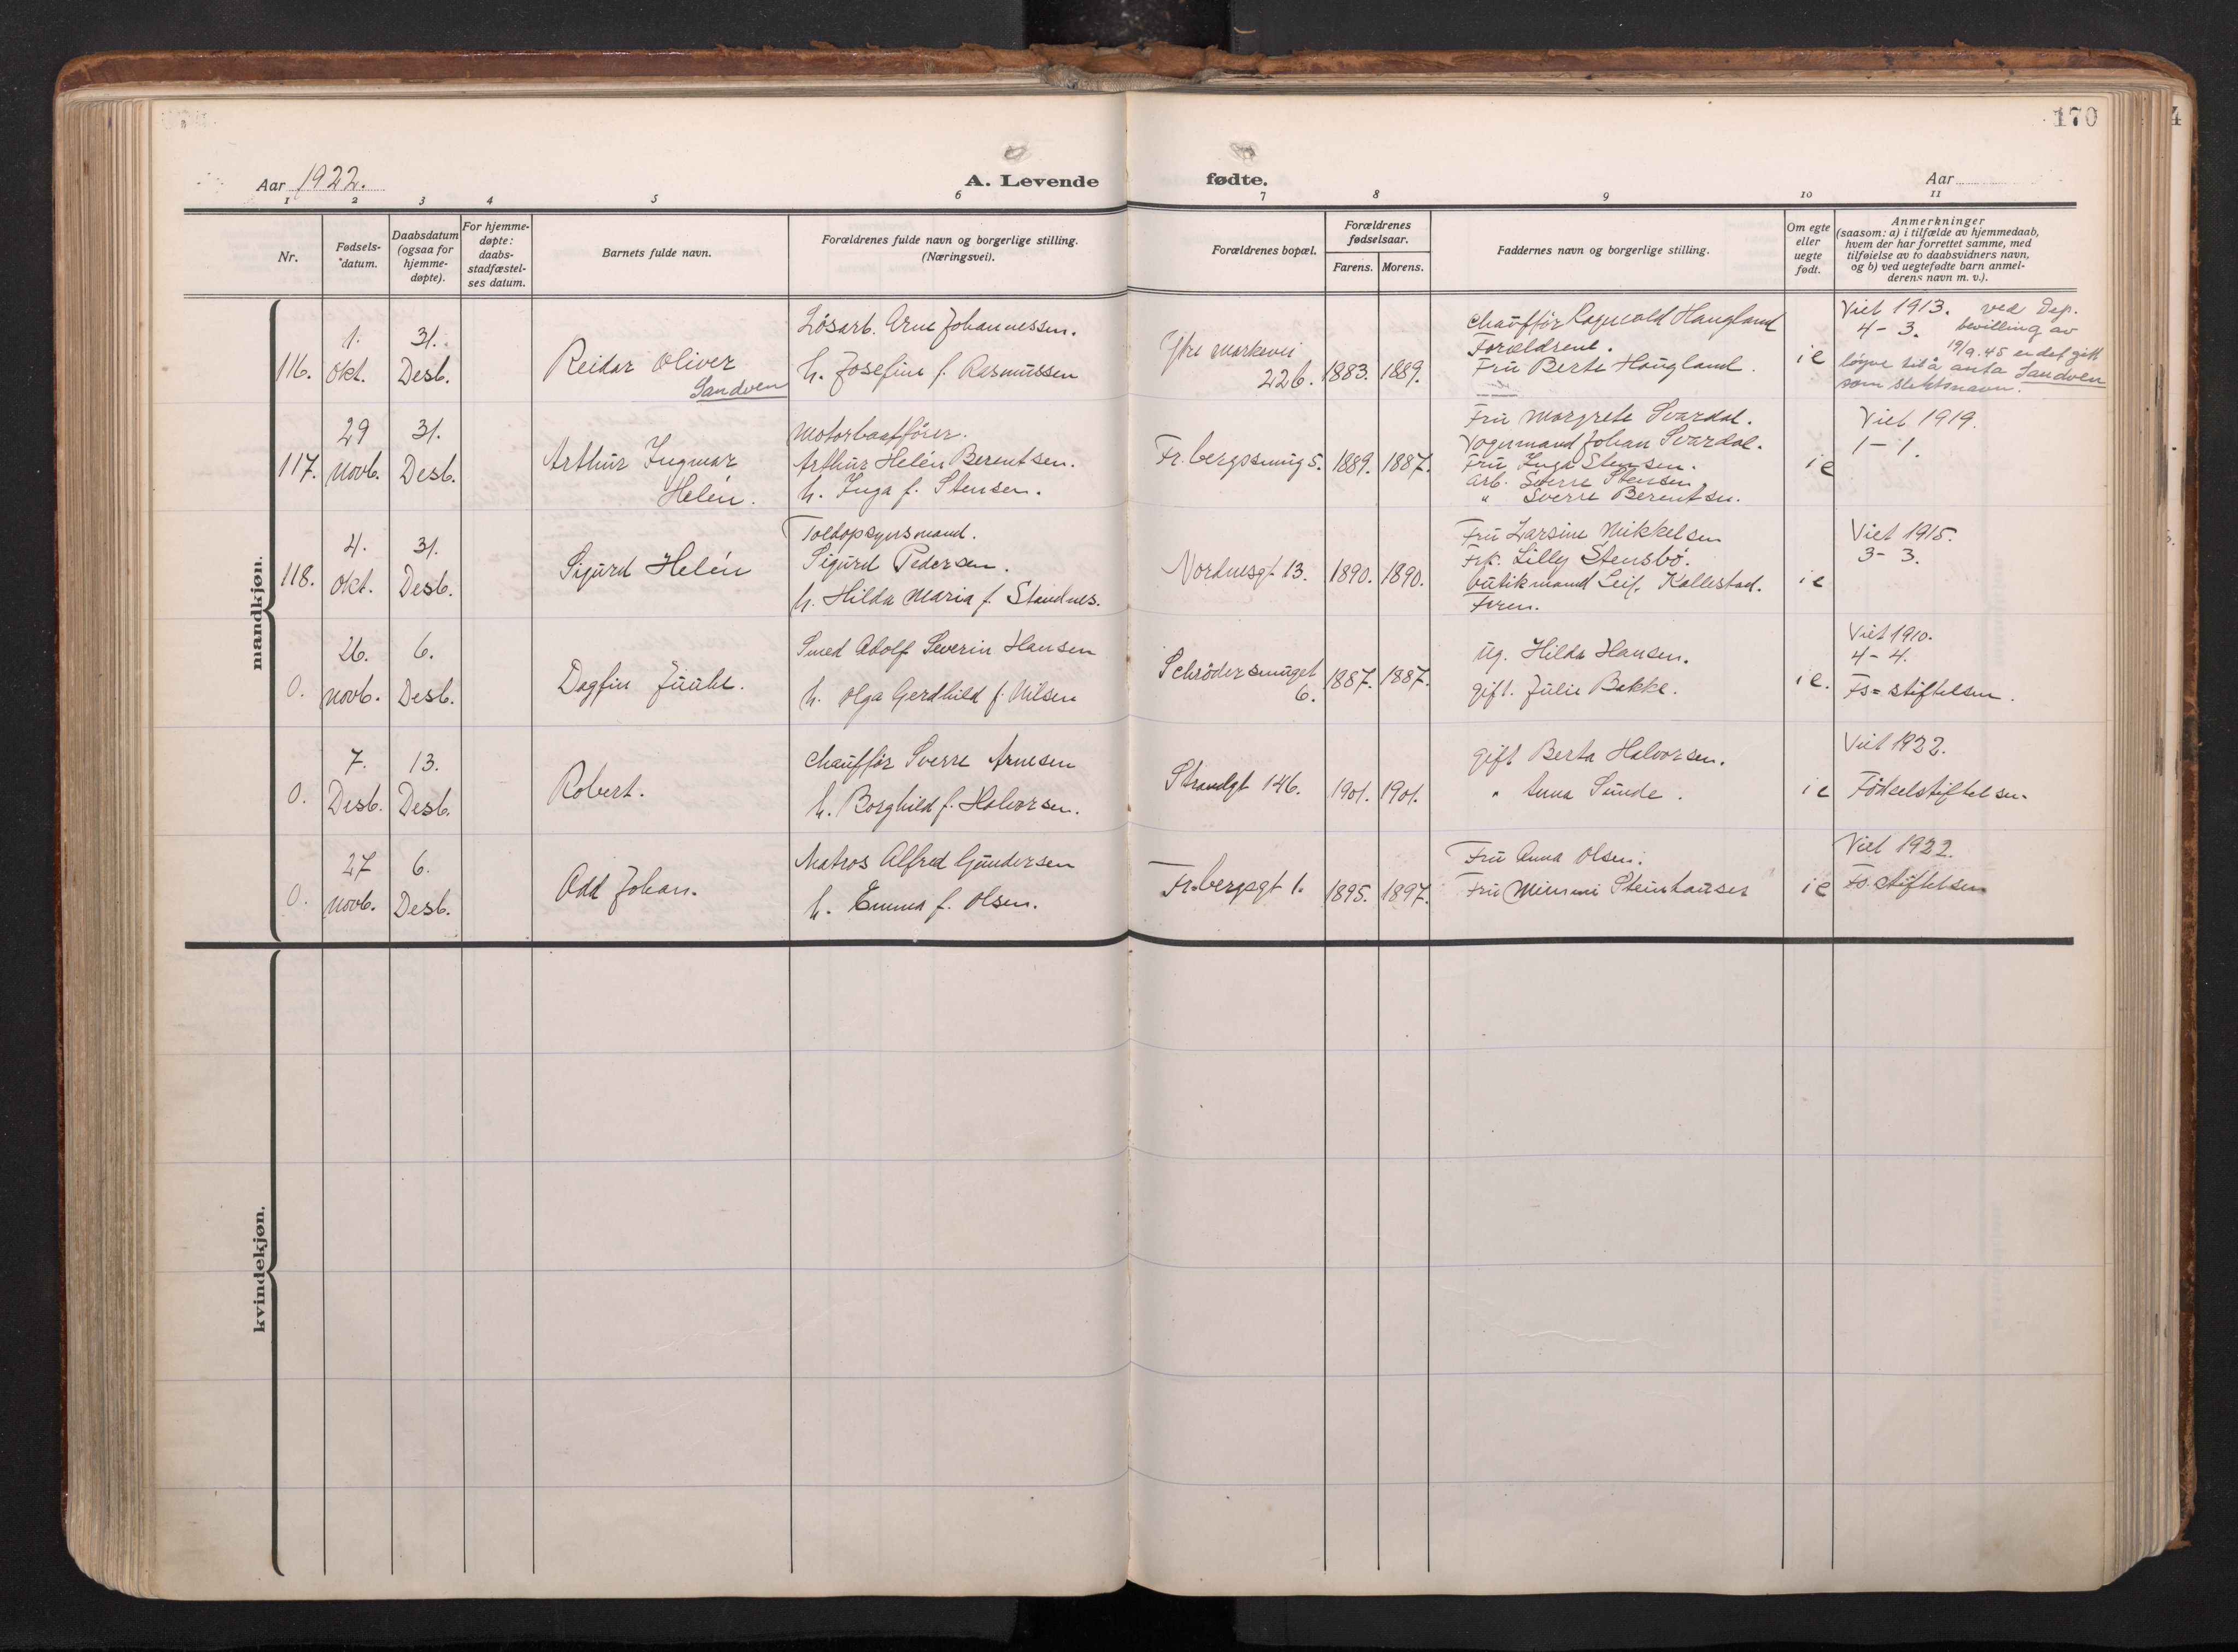 170
Aar 1922.
A. Levende fødte.
Aar
1 2 3 4 5 6 7 8 9 10 11
Nr.
Fødsels-
datum.
Daabsdatum
(ogsaa for
hjemme-
døpte).
For hjemme-
døpte:
daabs-
stadfæstel-
ses datum.
Barnets fulde navn.
Forældrenes fulde navn og borgerlige stilling.
(Næringsvei).
Forældrenes bopæl.
Forældrenes
fødselsaar.
Farens. Morens.
Faddernes navn og borgerlige stilling.
Om egte
eller
uegte
født.
Anmerkninger
(saasom: a) i tilfælde av hjemmedaab,
hvem der har forrettet samme, med
tilføielse av to daabsvidners navn,
og b) ved uegtefødte barn anmel-
derens navn m. v.).
mandkjøn.
116.
1.
Okt.
31.
Desb.
Reidar Oliver
Sandven
Løsarb. Arne Johannessen.
h. Josefine f. Rasmussen
Ytre Markevei
22b.
1883. 1889.
Chauffør Ragnvald Haugland
Forældrene.
Fru Berte Haugland.
ie
Viet 1913.
4-3.
ved Dep.
bevilling av
19/9.45 er det gitt
løyve til å anta Sandven
som slektsnavn.
117.
29
Novb.
31.
Desb.
Arthur Ingmar
Helén.
Motorbaatfører.
Arthur Helén Berentsen.
h. Inga f. Stensen.
Fr.bergssmug 5.
1889. 1887.
Fru Margrete Svardal.
Vognmand Johan Svardal.
Fru Inga Stensen.
Arb. Sverre Stensen
" Sverre Berentsen.
ie
Viet 1919.
1-1.
118.
4.
Okt.
31.
Desb.
Sigurd Helén
Toldopsynsmand.
Sigurd Pedersen.
h. Hilda Maria f. Standnes.
Nordnesgt 13.
1890. 1890.
Fru Larsine Mikkelsen
Frk. Lilly Stensbø.
butikmand Leif. Kallestad.
Faren.
ie
Viet 1915.
3-3.
0.
26.
Novb.
6.
Desb.
Dagfin Juuhl.
Smed Adolf Severin Hansen
h. Olga Gerdhild f. Nilsen
Schrödersmuget
6.
1887. 1887.
Ug. Hilda Hansen.
gift. Julie Bakke.
ie.
Viet 1910.
4-4.
Fs=stiftelsen.
0.
7.
Desb.
13.
Desb.
Robert.
Chauffør Sverre Arnesen
h. Borghild f. Halvorsen.
Strandgt 146.
1901. 1901.
gift Berta Halvorsen.
" Anna Sunde.
ie
Viet 1922.
Fødselstiftelsen.
0.
27
Novb.
6.
Desb.
Odd Johan.
Matros Alfred Gundersen
h. Emma f. Olsen.
Fr.bergsgt 1.
1895. 1897.
Fru Anna Olsen.
Fru Mimmi Steinhauser
ie
Viet 1922.
Fs.stiftelsen
kvindekjøn.